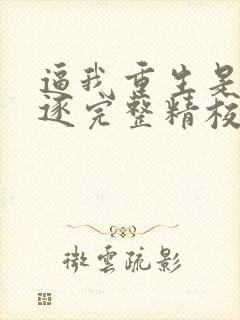 逼我重生是
逐完整精校
微雲疏影